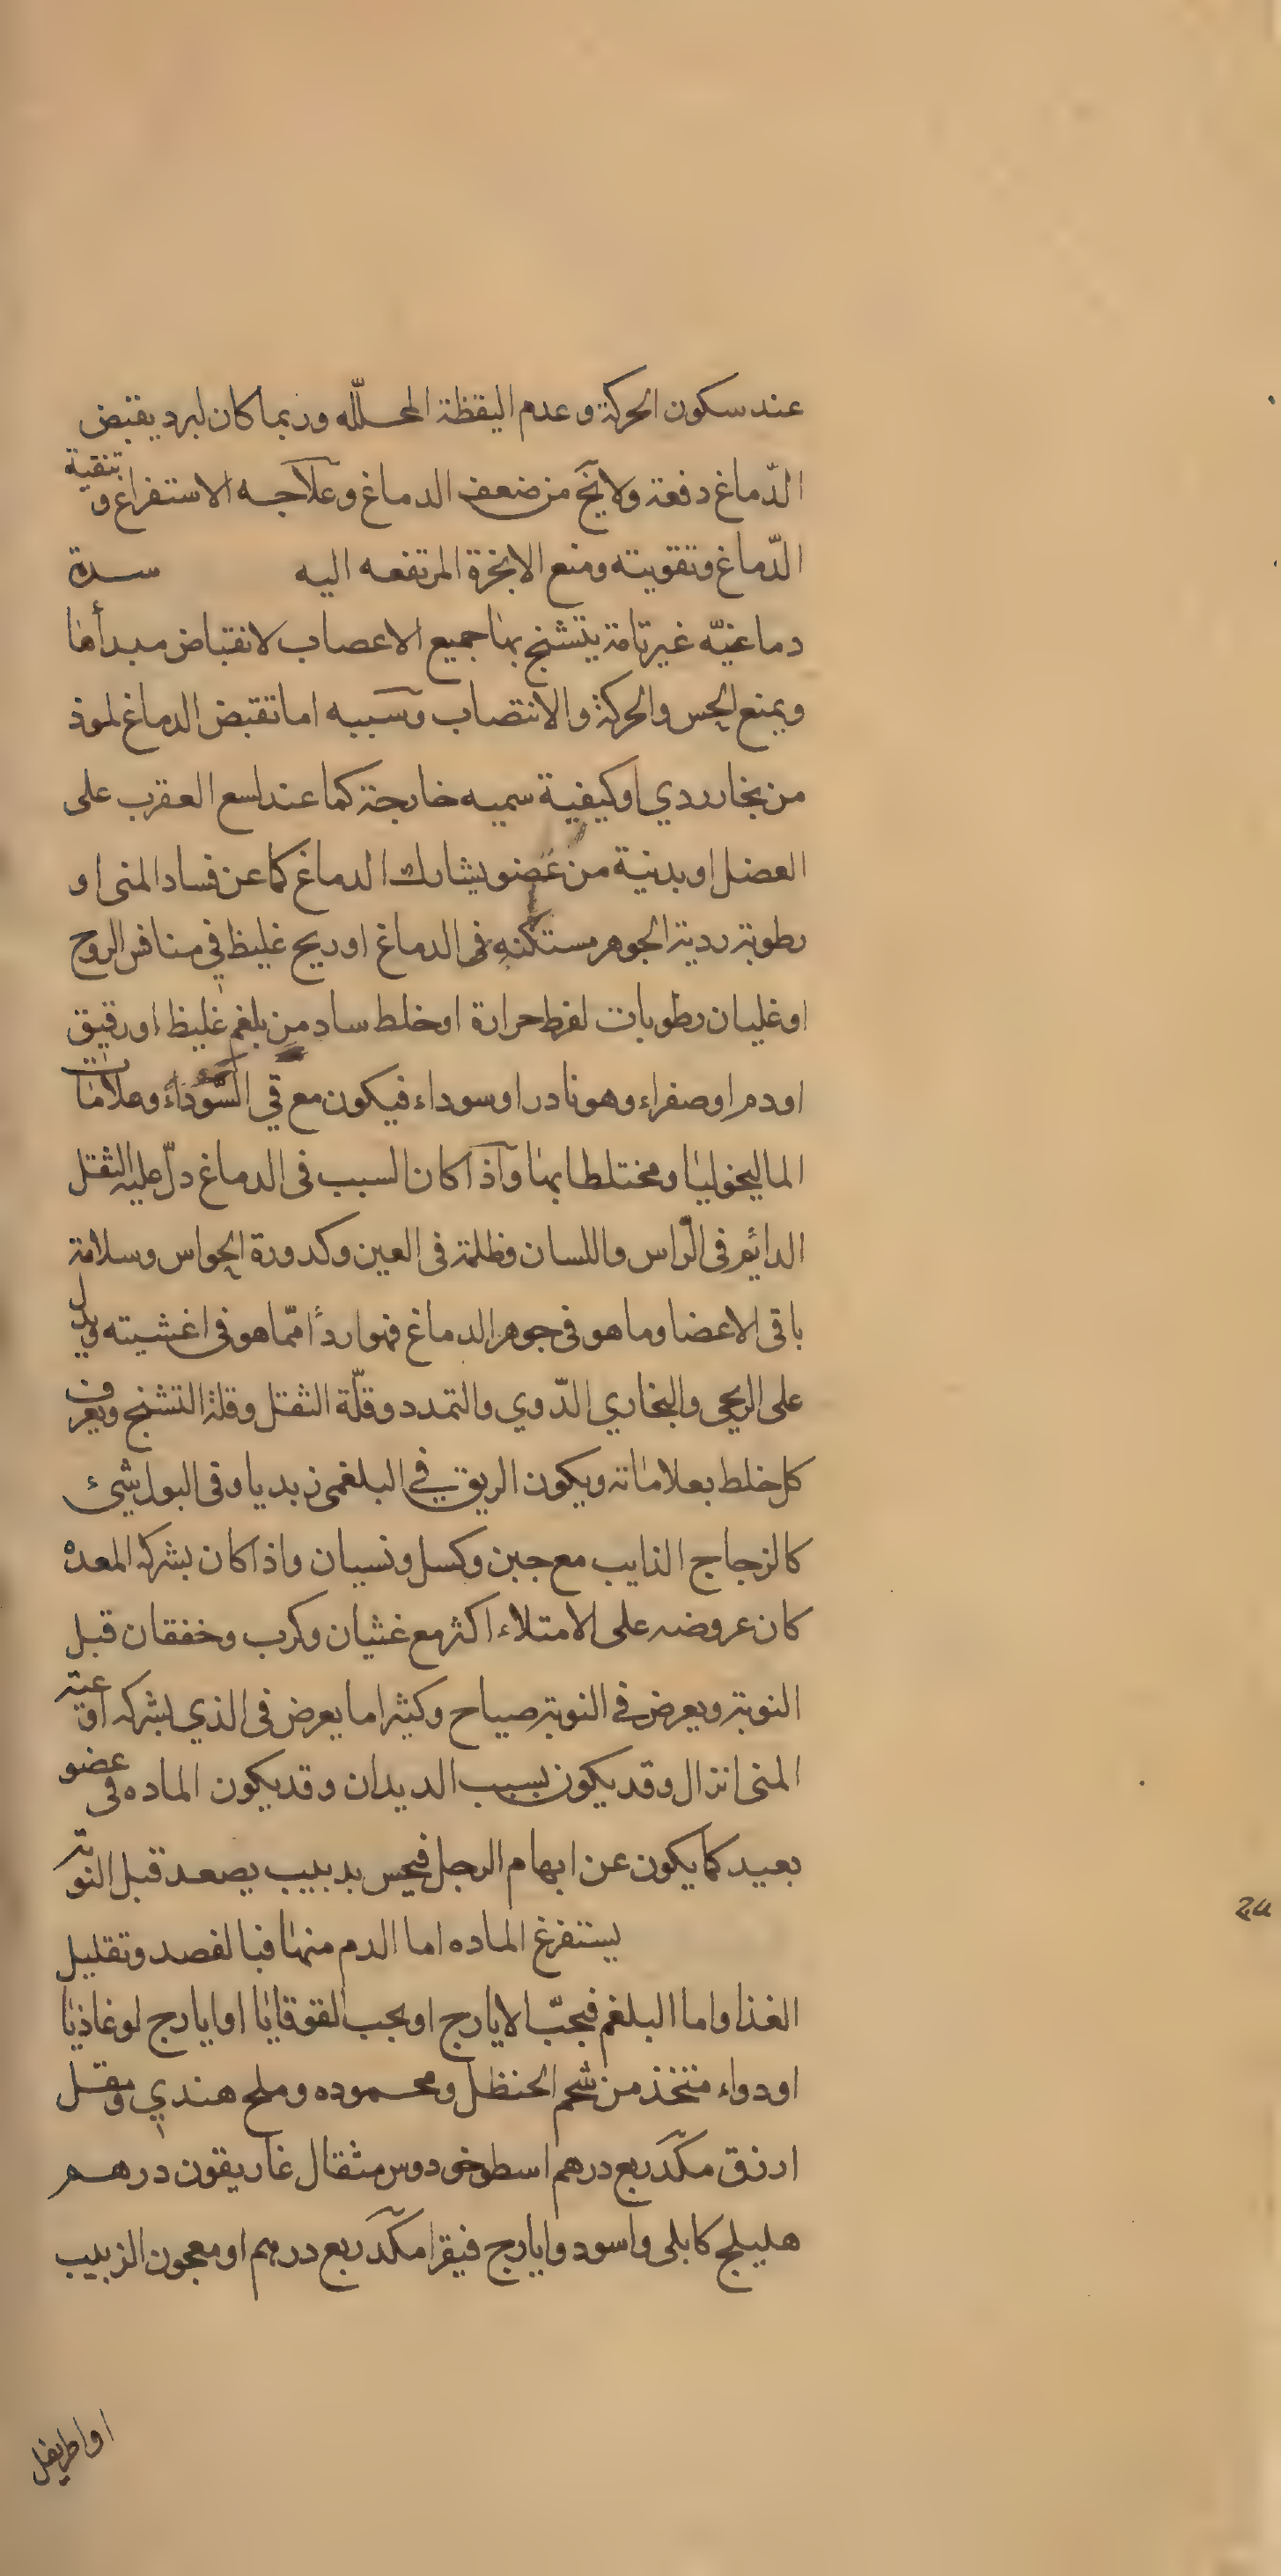 عند سكون الحركة وعدم اليقظة المحللّه وربما كان لبرد يقبض
الدّماغ دفعة ولا يخ من ضعف الدماغ وعلاجه الاستفراغ وتنقية
الدّماغ وتقويته ومنع الابخرة المرتفعه اليه سدة
دماغيّه غير تامة يتشنج بها جميع الاعصاب لانقباض مبدأها
ويمنع الحس والحركة والانتصاب وسببه اما تقبض الدماغ لموذ
من بخار ردي او كيفية سميه خارجة كما عند لسع العقرب على
العضل او بدنية من عضو يشارك الدماغ كما عن فساد المنى او
رطوبة ردية الجوهر مستكنه فى الدماغ او ريح غليظ في منافس الروح
او غليان رطوبات لفرط حرارة او خلط ساد من بلغم غليظ او رقيق
او دم او صفراء وهو نادر او سوداء فيكون مع قي السّوداء وعلامات
الماليخوليا ومختلطا بها وآذا كان السبب فى الدماغ دلّ عليه الثقل
الدائم فى الرّاس واللسان وظلمة فى العين وكدورة الحواس وسلامة
باقى الاعضا وما هو فى جوهر الدماغ فهو اردأ مّما هو فى اغشيته ويدل
على الريحى والبخاري الدّوي والتمدد وقلّة الثقل وقلة التشنج ويعرف
كل خلط بعلاماته ويكون الريق في البلغمى زبديا وفى البول شيء
كالزجاج الذايب مع جبن وكسل ونسيان واذا كان بشركة المعده
كان عروضه على الامتلاء اكثر مع غثيان وكرب وخفقان قبل
النوبة ويعرض في النوبة صياح وكثيرا ما يعرض فى الذي بشركه اوعية
المنى انزال وقد يكون بسبب الديدان وقد يكون الماده فى عضو
بعيد كما يكون عن ابهام الرجل فيحس بدبيب يصعد قبل النوبة
يستفرغ الماده اما الدم منها فبالفصد وتقليل
الغذا واما البلغم فبحبّ الايارج او بحب القوقايا او ايارج لوغاذيا
او دواء متخذ من شحم الحنظل ومحموده وملح هندي ومقل
ازرق مكد ربع درهم اسطوخودوس مثقال غاريقون درهم
هليلج كابلى واسود وايارج فيقرا مكد ربع درهم او معجون الزبيب
او اطريفل